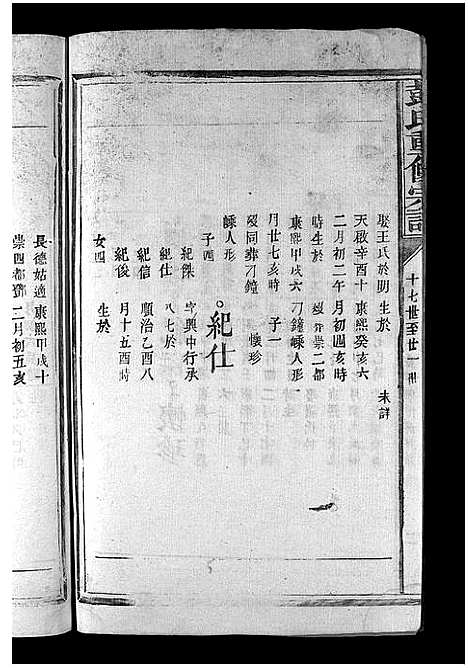 彭氏重修宗譜
十七世至廿一世
娶王氏於明 生於 未詳
天啟辛酉十 康熙癸亥六
二月初二午 月初四亥時
時生於 崇二都
康熙甲戌六 刁鐘嵊人形
月廿七亥時 子一
歿同葬刁鐘 懷珍
嵊人形
子四 紀仕
紀傑 字興中行承
紀仕 八七於
紀信 順治乙酉八
紀俊 月十五酉時
女四 生於
長德姑適 康熙甲戌十
崇四都鄧 二月初五亥